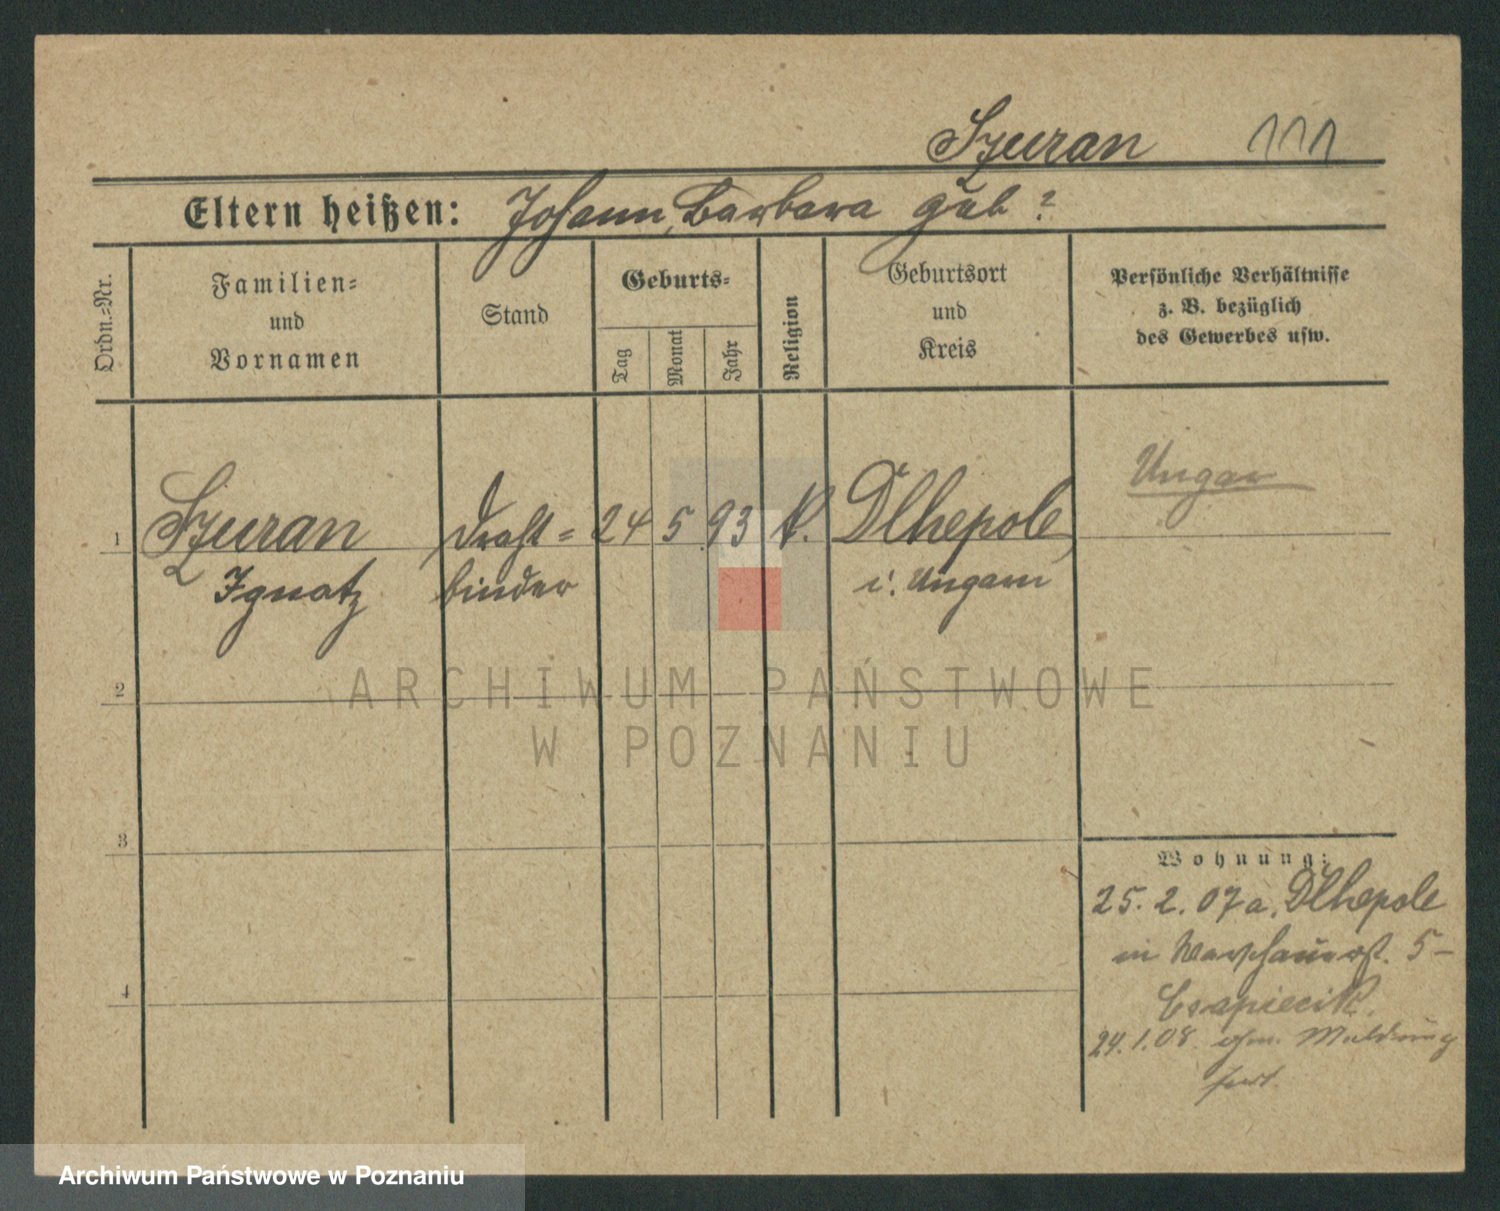 Szuran 111
Eltern heißen: Johann, Barbara geb ?
Ordn.-Nr.
Familien-
und
Vornamen
Stand
Geburts-
Tag
Monat
Jahr
Religion
Geburtsort
und
Kreis
Persönliche Verhältnisse
z. B. bezüglich
des Gewerbes usw.
Ungar
1 Szuran Draht- 24 5 93 k. Dlhepole
Ignatz binder i. Ungarn
2
3
4
Wohnung:
25. 2. 07 a. Dlhepole
in Warschauerst. 5-
Csapiecik.
24. 1. 08. ohn. Meldung
fort
ARCHIWUM PAŃSTWOWE
W POZNANIU
Archiwum Państwowe w Poznaniu